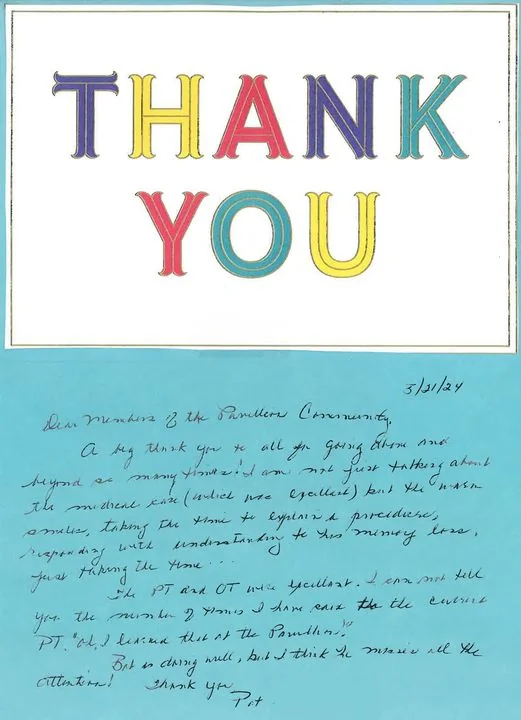 THANK
YOU
3/21/24
Dear Members of the Pavillion Community,
A big thank you to all for going above and
beyond so many times! I am not just talking about
the medical care (which was excellent) but the warm
smiles, taking the time to explain a procedure,
responding with understanding to his memory loss,
just taking the time...
The PT and OT were excellent. I can not tell
you the number of times I have said to the current
PT. "oh, I learned that at the Pavillion!"
Bob is doing well, but I think he misses all the
attention! Thank you
Pat